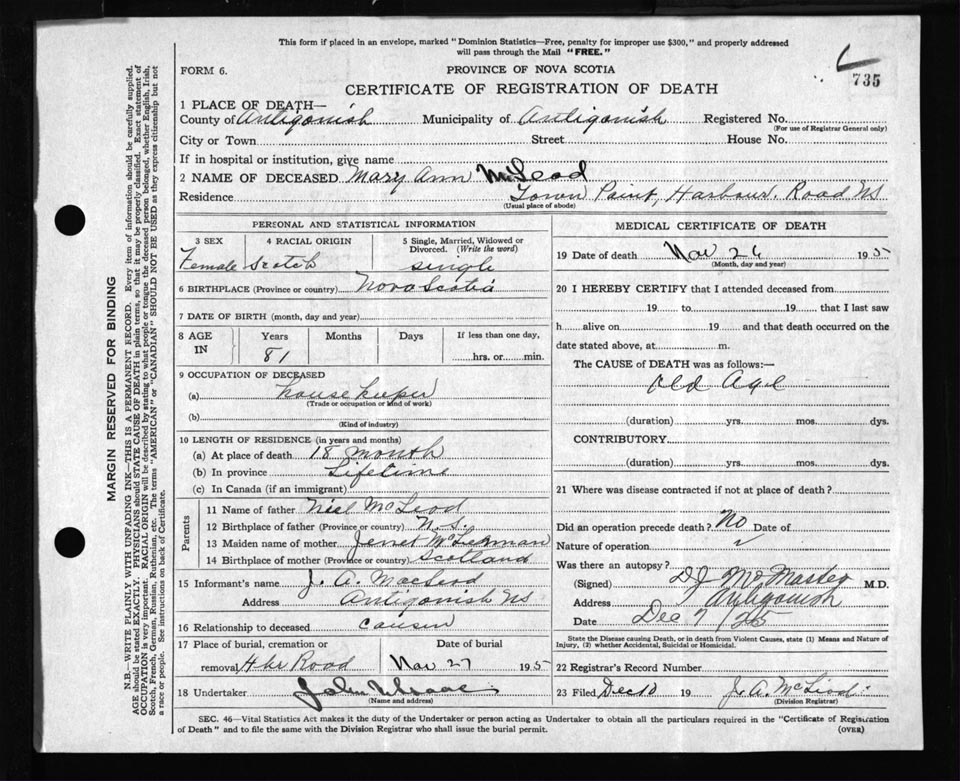 This form if placed in an envelope, marked "Dominion Statistics—Free, penalty for improper use $300," and properly addressed
will pass through the Mail "FREE."
FORM 6.
PROVINCE OF NOVA SCOTIA
735
CERTIFICATE OF REGISTRATION OF DEATH
1 PLACE OF DEATH—
County of Antigonish Municipality of Antigonish Registered No.
(For use of Registrar General only)
City or Town Street House No.
If in hospital or institution, give name
2 NAME OF DECEASED Mary Ann McLeod
Residence Town Point, Harbour Road NS
(Usual place of abode)
PERSONAL AND STATISTICAL INFORMATION
3 SEX 4 RACIAL ORIGIN 5 Single, Married, Widowed or
Divorced. (Write the word)
Female Scotch single
6 BIRTHPLACE (Province or country) Nova Scotia
7 DATE OF BIRTH (month, day and year)
8 AGE IN Years Months Days If less than one day,
81 hrs. or min.
9 OCCUPATION OF DECEASED
(a) house keeper
(Trade or occupation or kind of work)
(b)
(Kind of industry)
10 LENGTH OF RESIDENCE (in years and months)
(a) At place of death 18 month
(b) In province Lifetime
(c) In Canada (if an immigrant)
Parents
11 Name of father Niel McLeod
12 Birthplace of father (Province or country) N.S.
13 Maiden name of mother
14 Birthplace of mother (Province or country) Scotland
15 Informant's name J. A. MacLeod
Address Antigonish NS
16 Relationship to deceased cousin
17 Place of burial, cremation or Date of burial
removal Hbr Road Nov 27 1925
18 Undertaker John
(Name and address)
MEDICAL CERTIFICATE OF DEATH
19 Date of death Nov 26 1925
(Month, day and year)
20 I HEREBY CERTIFY that I attended deceased from
19 to 19 , that I last saw
h alive on 19 and that death occurred on the
date stated above, at m.
The CAUSE of DEATH was as follows:
Old Age
(duration) yrs. mos. dys.
CONTRIBUTORY
(duration) yrs. mos. dys.
21 Where was disease contracted if not at place of death?
Did an operation precede death? No Date of
Nature of operation
Was there an autopsy?
(Signed) D J McMaster M.D.
Address Antigonish
Date Dec 7 /25
State the Disease causing Death, or in death from Violent Causes, state (1) Means and Nature of
Injury, (2) whether Accidental, Suicidal or Homicidal.
22 Registrar's Record Number
23 Filed Dec 10 19 J. A. McLeod
(Division Registrar)
SEC. 46—Vital Statistics Act makes it the duty of the Undertaker or person acting as Undertaker to obtain all the particulars required in the "Certificate of Registration
of Death" and to file the same with the Division Registrar who shall issue the burial permit.
(OVER)
MARGIN RESERVED FOR BINDING
N.B.—WRITE PLAINLY WITH UNFADING INK—THIS IS A PERMANENT RECORD. Every item of information should be carefully supplied.
AGE should be stated EXACTLY. PHYSICIANS should STATE CAUSE OF DEATH in plain terms, so that it may be properly classified. Exact statement of
OCCUPATION is very important. RACIAL ORIGIN will be described by stating to what people or tongue the deceased person belonged, whether English, Irish,
Scotch, French, German, Russian, Ruthenian, etc. The terms "AMERICAN" or "CANADIAN" SHOULD NOT BE USED as they express citizenship but not
a race or people. See instructions on back of Certificate.